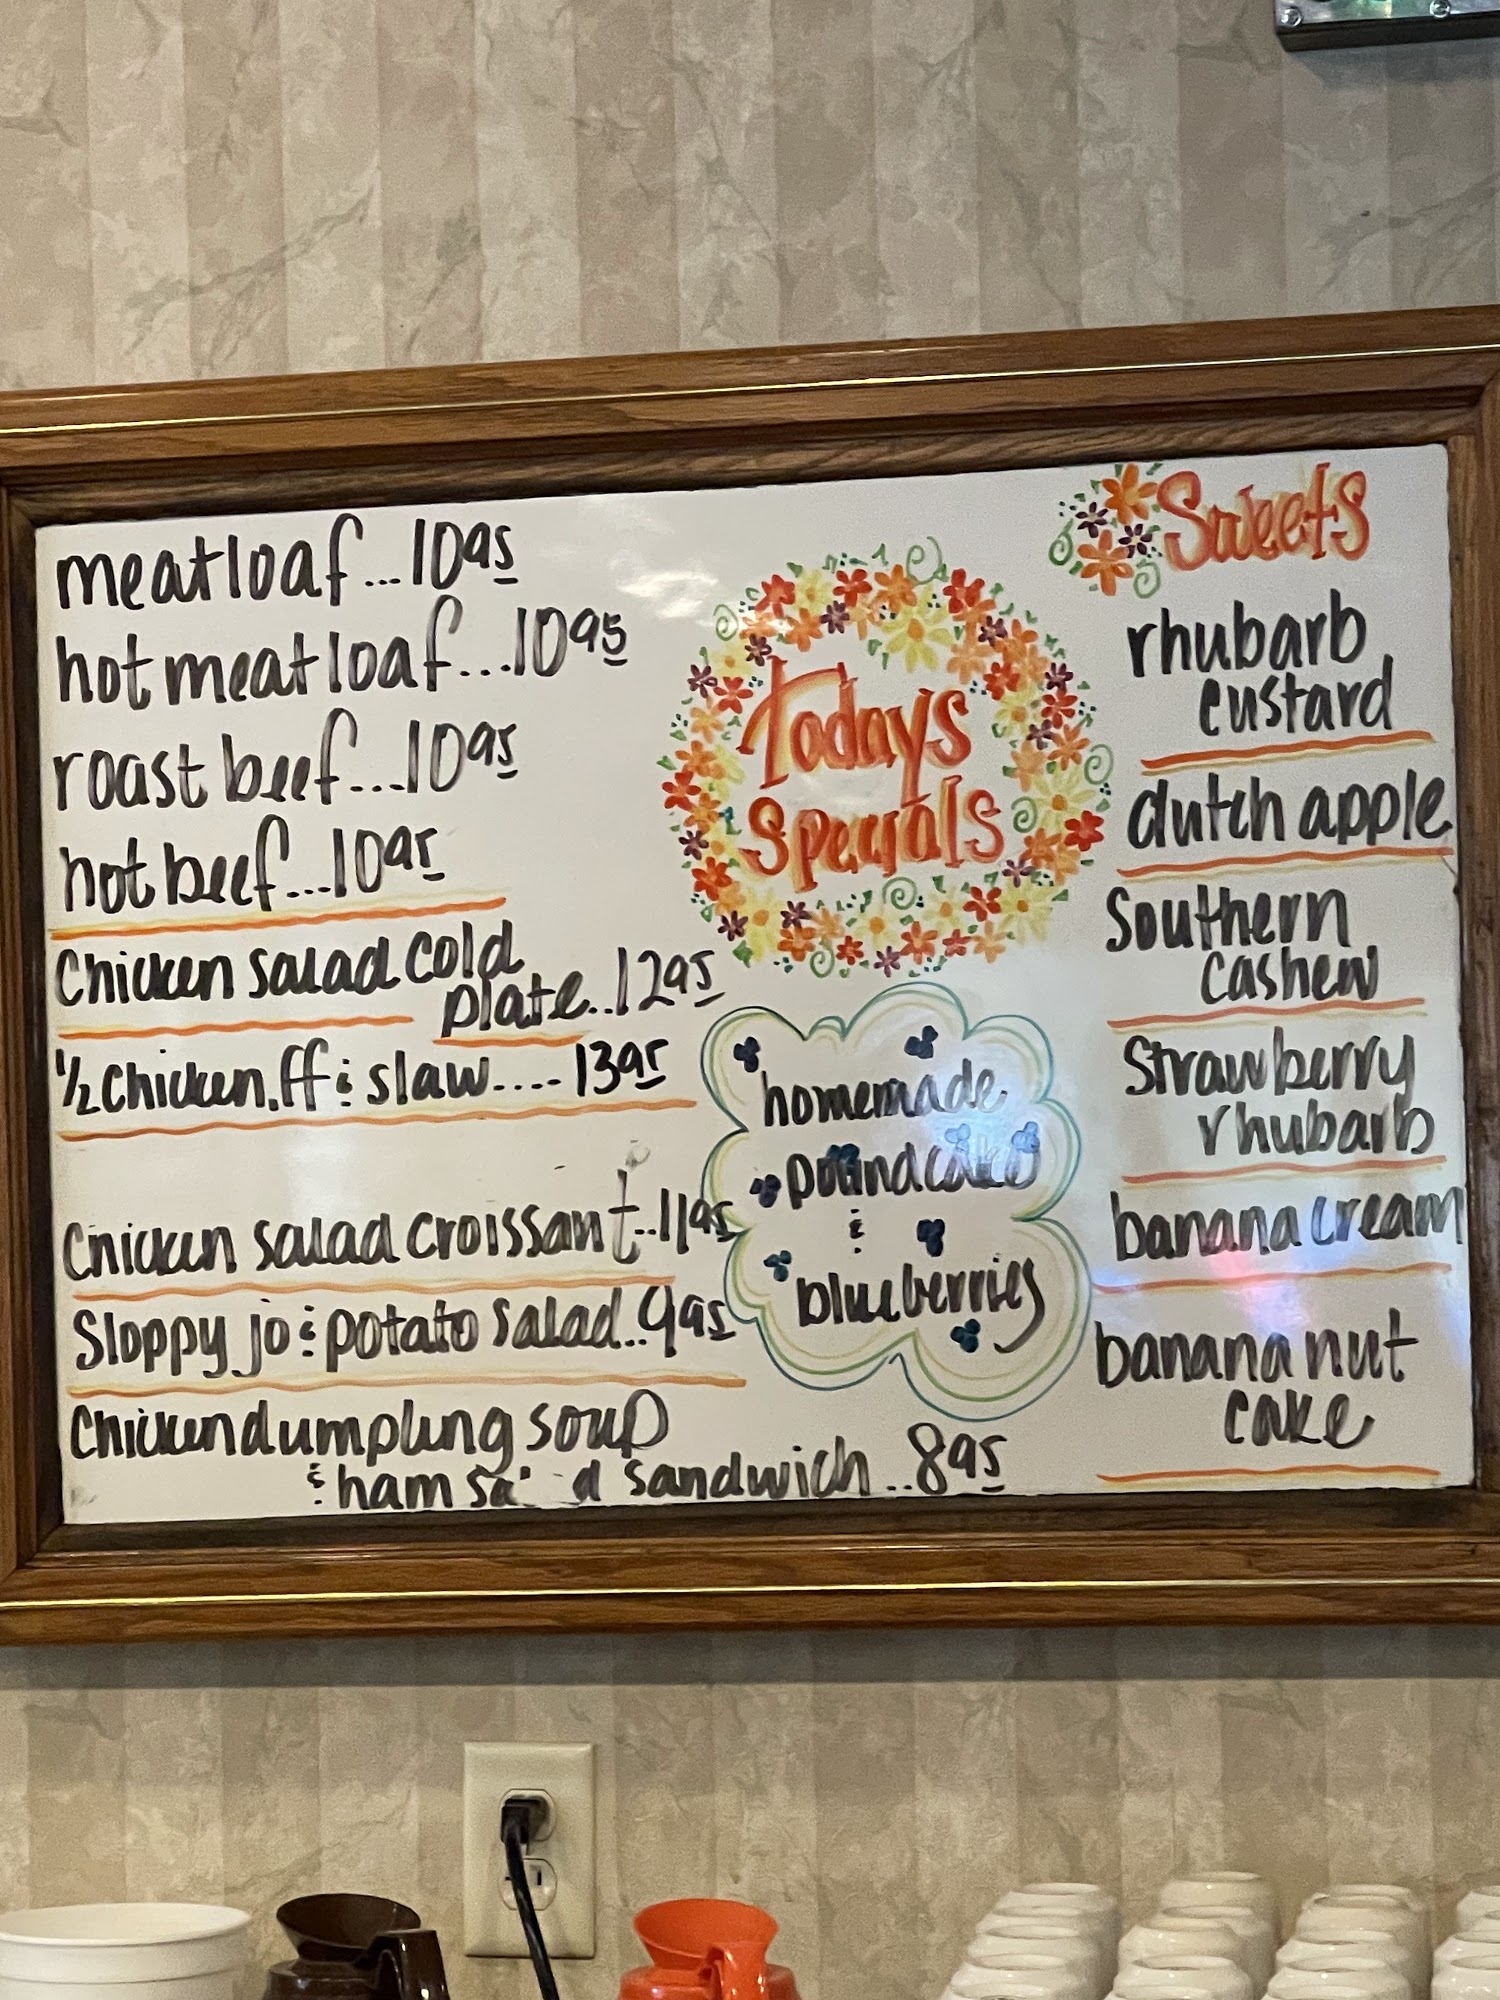 meatloaf...10 95
hot meatloaf....10 95
roast beef....10 95
hot beef....10 95
Chicken salad cold
plate..12 95
1/2 chicken, ff & slaw....13 95
Chicken salad croissant..11 95
Sloppy jo & potato salad..9 95
Chicken dumpling soup
& ham sandwich..8 95
Todays
Specials
homemade
poundcake
&
blueberries
Sweets
rhubarb
custard
dutch apple
Southern
cashew
Strawberry
rhubarb
banana cream
banana nut
cake